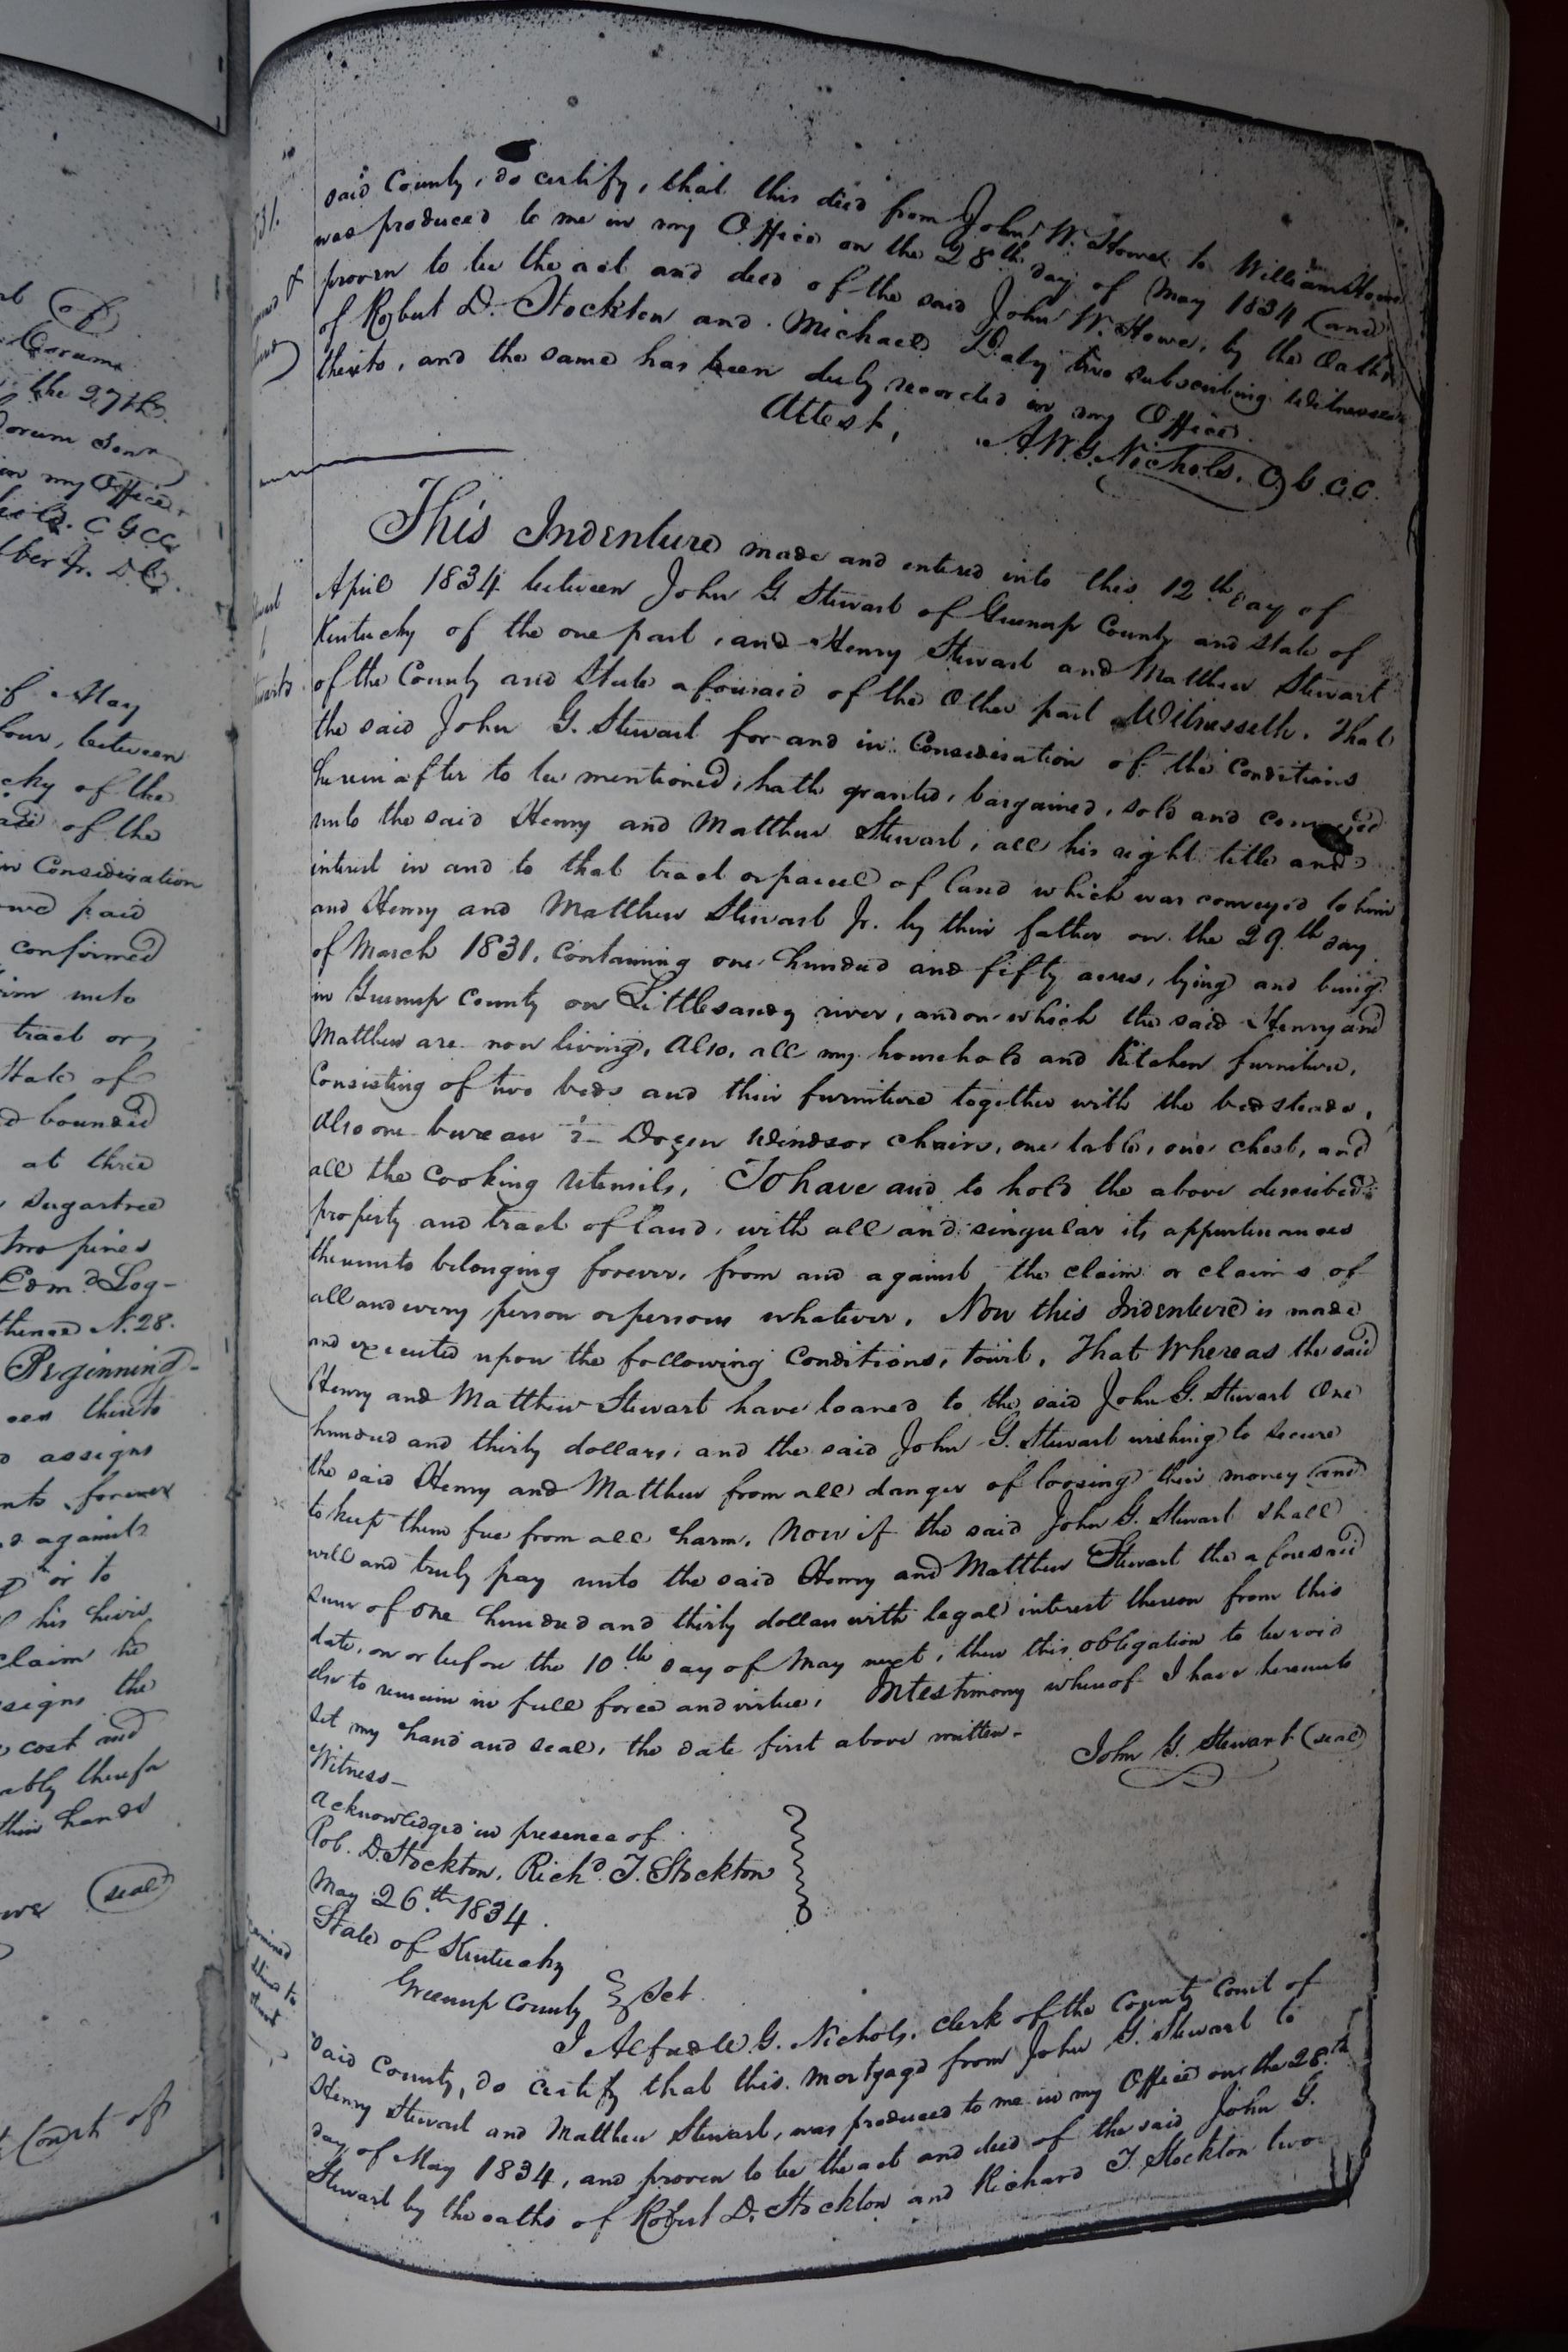 al of
Corum
the 27th
Corum Senr
in my Office
C G C C
D.C.
of May
four, between
cky of the
of the
in Consideration
paid
confirmed
him unto
tract or
State of
d bounded
at three
Sugartree
two pines
Edmd Log-
thence N. 28.
Beginning-
thereto
assigns
forever
against
or to
his heirs
claim he
assigns the
cost and
therefor
their hands
(seal)
Court of
said County, do certify, that this deed from John W. Howe to William Howe
was produced to me in my Office on the 28th day of May 1834 and
proven to be the act and deed of the said John W. Howe, by the Oaths
of Robert D. Stockton and Michael Daly two subscribing Witnesses
thereto, and the same has been duly recorded in my Office.
Attest, A.W.G. Nichols. C G C C.
This Indenture made and entered into this 12th day of
April 1834 between John G Stewart of Greenup County and State of
Kentucky of the one part, and Henry Stewart and Matthew Stewart
of the County and State aforesaid of the Other part Witnesseth. That
the said John G. Stewart for and in Consideration of the Conditions
hereinafter to be mentioned, hath granted, bargained, sold and conveyed
unto the said Henry and Matthew Stewart, all his right title and
interest in and to that tract or parcel of land which was conveyed to him
and Henry and Matthew Stewart Jr. by their father on the 29th day
of March 1831. Containing one hundred and fifty acres, lying and being
in Greenup County on Littlesandy river, and on which the said Henry and
Matthew are now living. Also, all my household and Kitchen furniture,
Consisting of two beds and their furniture together with the bedsteads,
Also one bureau ½ Dozen Windsor chairs, one table, one chest, and
all the cooking utensils, To have and to hold the above described
property and tract of land, with all and singular its appurtenances
thereunto belonging forever, from and against the claim or claims of
all and every person or persons whatever. Now this Indenture is made
and executed upon the following Conditions, towit, That Whereas the said
Henry and Matthew Stewart have loaned to the said John G. Stewart One
hundred and thirty dollars, and the said John G. Stewart wishing to secure
the said Henry and Matthew from all danger of loosing their money and
to keep them free from all harm. Now if the said John G. Stewart shall
well and truly pay unto the said Henry and Matthew Stewart the aforesaid
sum of one hundred and thirty dollars with legal interest thereon from this
date, on or before the 10th day of May next, then this obligation to be void
else to remain in full force and virtue, In testimony whereof I have hereunto
set my hand and seal, the date first above written-
John G. Stewart (seal)
Witness-
Acknowledged in presence of
Rob. D. Stockton, Richd. T. Stockton
May 26th 1834.
State of Kentucky
Greenup County } Sct.
I Alfred W. G. Nichols, clerk of the County Court of
said County, do certify that this mortgage from John G. Stewart to
Henry Stewart and Matthew Stewart, was produced to me in my Office on the 28th
day of May 1834, and proven to be the act and deed of the said John G.
Stewart by the oaths of Robert D. Stockton and Richard T. Stockton two